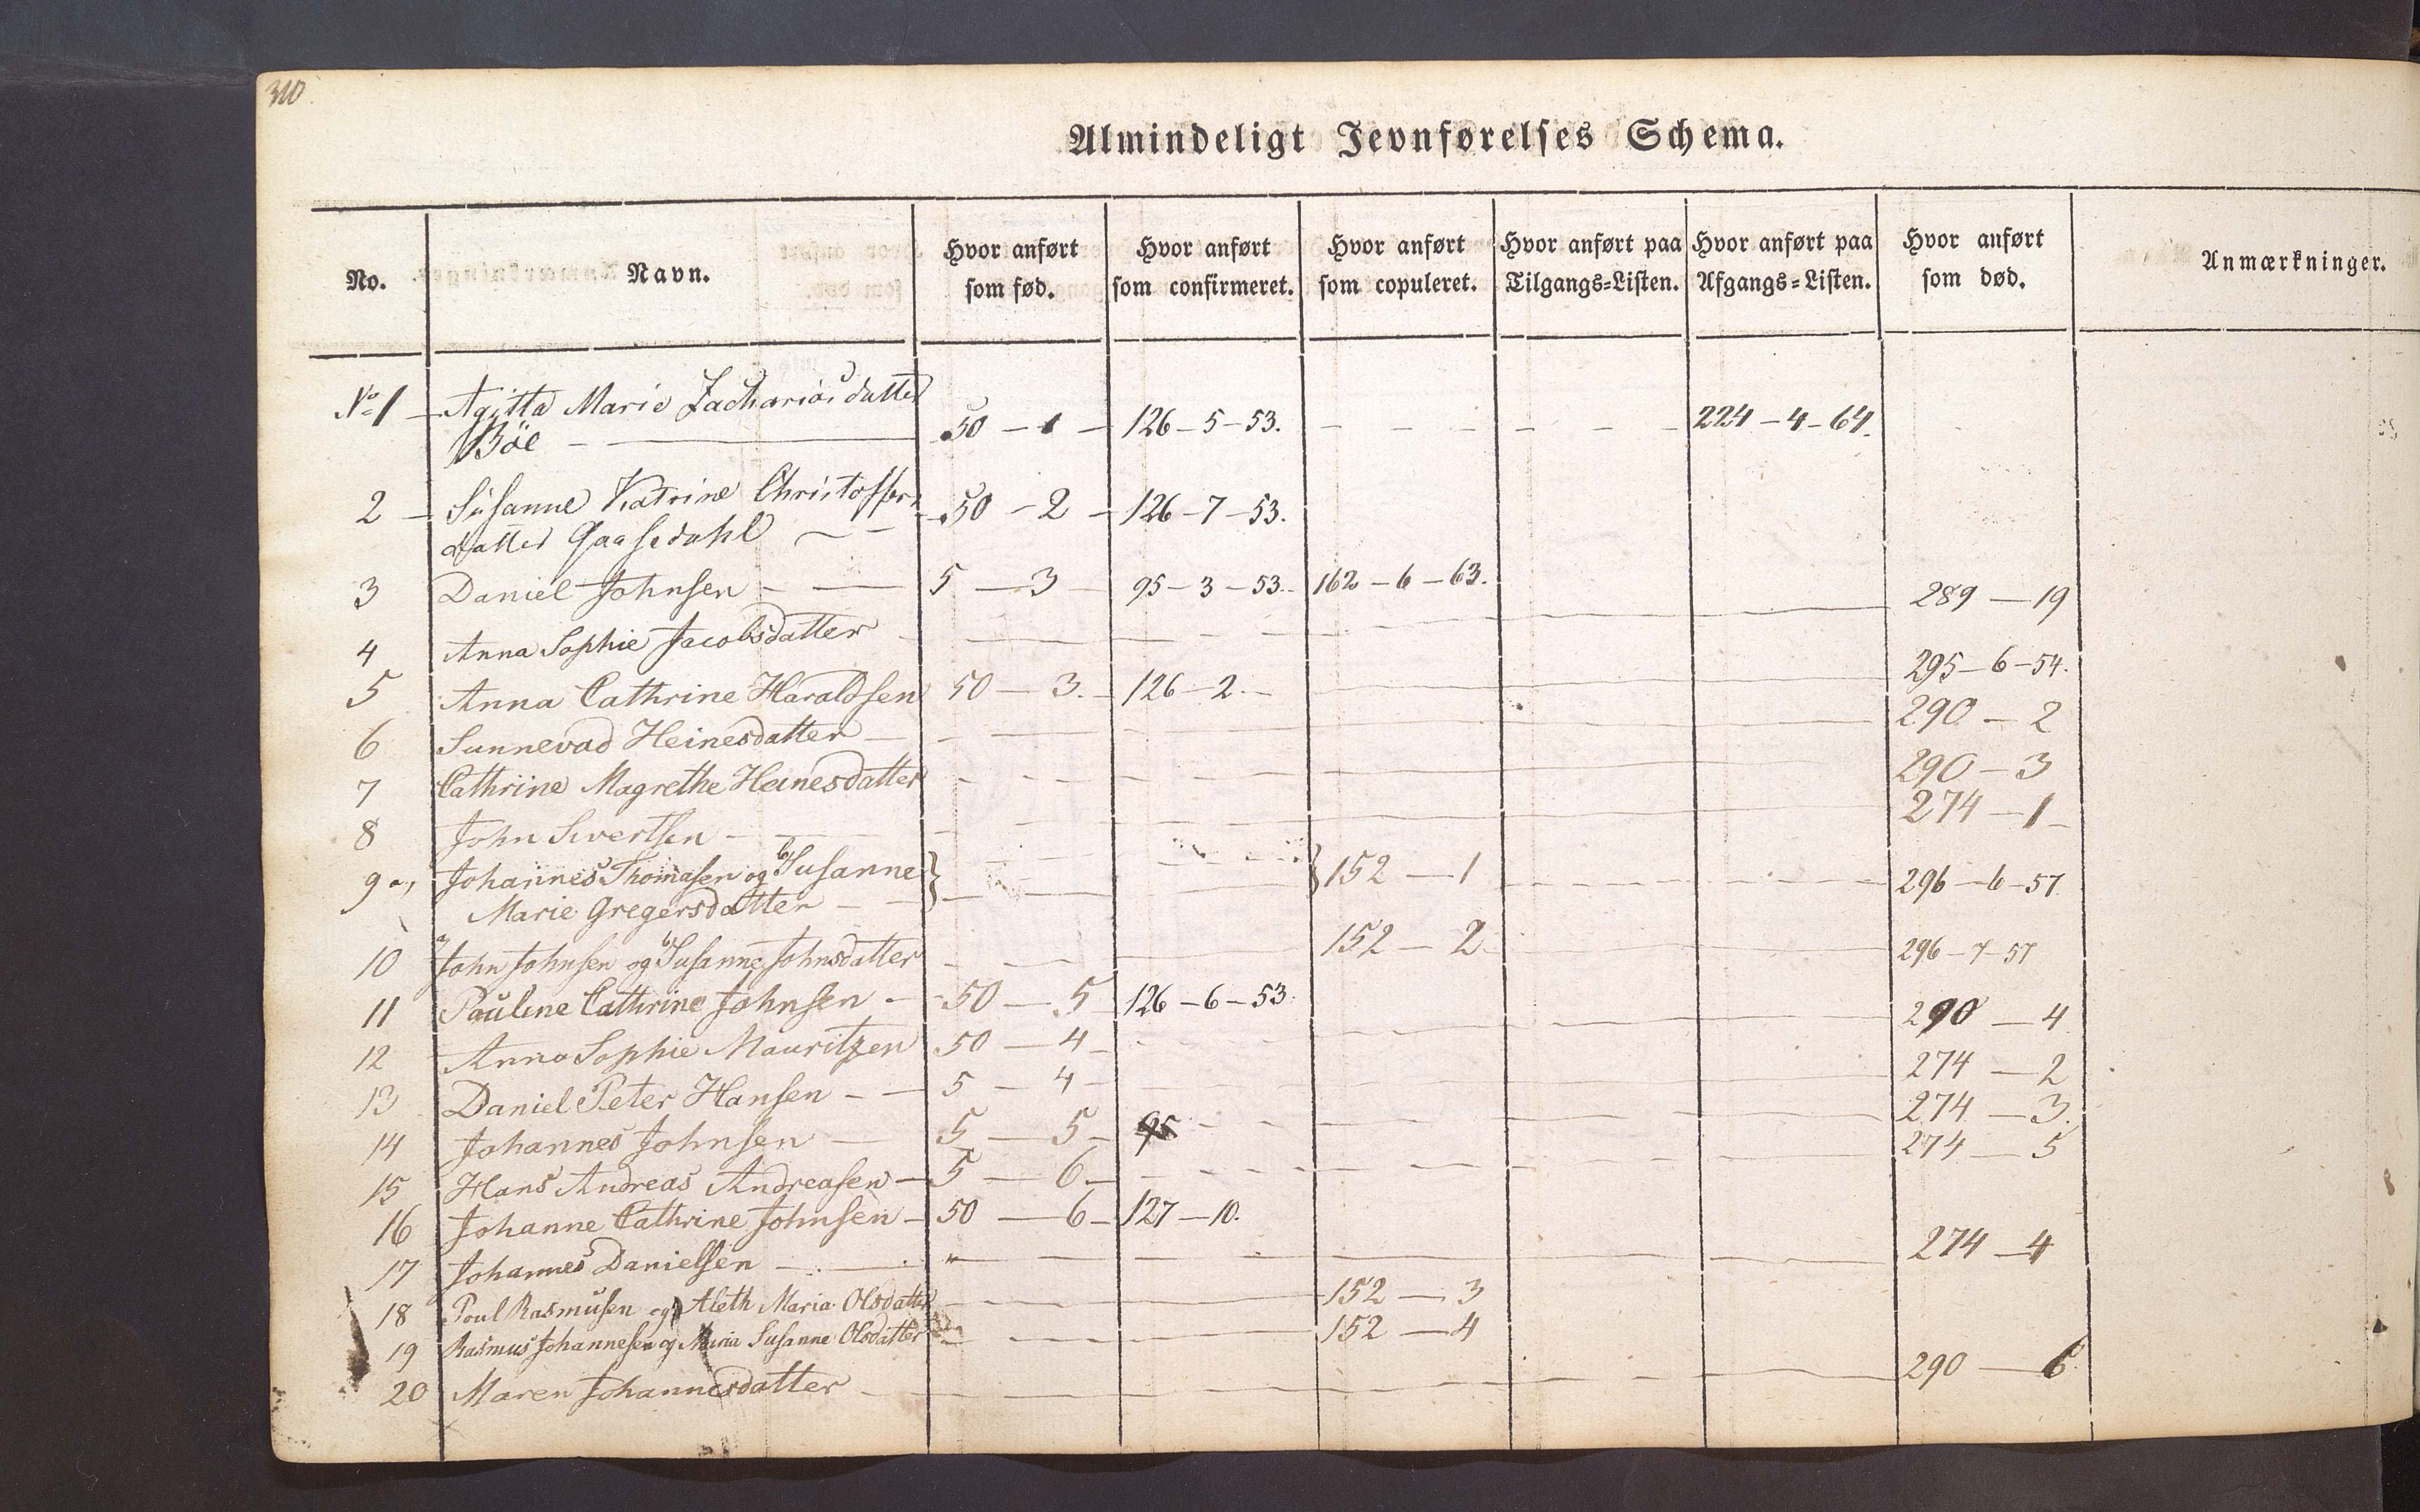 310.
Almindeligt Jevnførelses Schema.
No. Navn. Hvor anført som fød. Hvor anført som confirmeret. Hvor anført som copuleret. Hvor anført paa Tilgangs=Listen. Hvor anført paa Afgangs=Listen. Hvor anført som død. Anmærkninger.
No 1 — Agitta Marie Zacharias datter
Böe — 50 — 1 — 126 — 5 — 53. 224 — 4 — 64.
2 — Susanne Katrine Christoffers
datter Gaasedahl — 50 — 2 — 126 — 7 — 53.
3 Daniel Johnsen — 5 — 3 95 — 3 — 53. 162 — 6 — 63.
4 Anna Sophie Jacobsdatter — 289 — 19
5 Anna Cathrine Haraldsen 50 — 3. 126 — 2. — 295 — 6 — 54.
6 Sunnevad Heinesdatter — 290 — 2
7 Cathrine Magrethe Heinesdatter — 290 — 3
8 John Sivertsen — 274 — 1
9 a, Johannes Thomasen og b, Susanne } } 152 — 1
Marie Gregersdatter — 296 — 6 — 57.
10 a John Johnsen og b, Susanne Johnsdatter 152 — 2. 296 — 7 — 57
11 Pauline Cathrine Johnsen — 50 — 5 126 — 6 — 53.
12 Anna Sophie Mauritzen 50 — 4 — 290 — 4
13 Daniel Peter Hansen — 5 — 4 — 274 — 2
14 Johannes Johnsen — 5 — 5 — 95 274 — 3.
15 Hans Andreas Andreasen — 5 — 6 — 274 — 5
16 Johanne Cathrine Johnsen — 50 — 6 — 127 — 10.
17 Johannes Danielsen — " — 274 — 4
18 Poul Rasmusen og Aleth Maria Olsdatter — 152 — 3
19 Rasmus Johannesen og Maria Susanne Olsdatter — 152 — 4
20 Maren Johannesdatter — 290 — 6